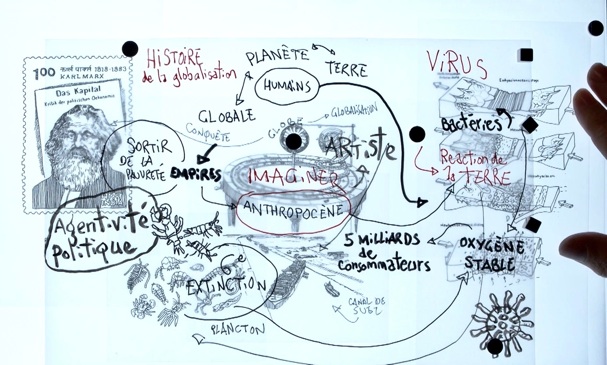 100
1818-1883
KARL MARX
Das Kapital
HiSTOiRE
de la globalisation
PLANÈTE
TERRE
HUMAiNS
GLOBALE
CONQUÊTE
GLOBE
GLOBALISATION
SORTIR
DE LA
PAUVRETÉ
EMPIRES
ARTiSTE
IMAGiNER
ANTHROPOCÈNE
Agentivité
politique
6e
EXTINCTION
PLANCTON
5 MiLLiARDS
de
consommateurs
CANAL DE
SUEZ
ViRUS
BACTÉRiES
Réaction de
la TERRE
OXYGÈNE
STABLE